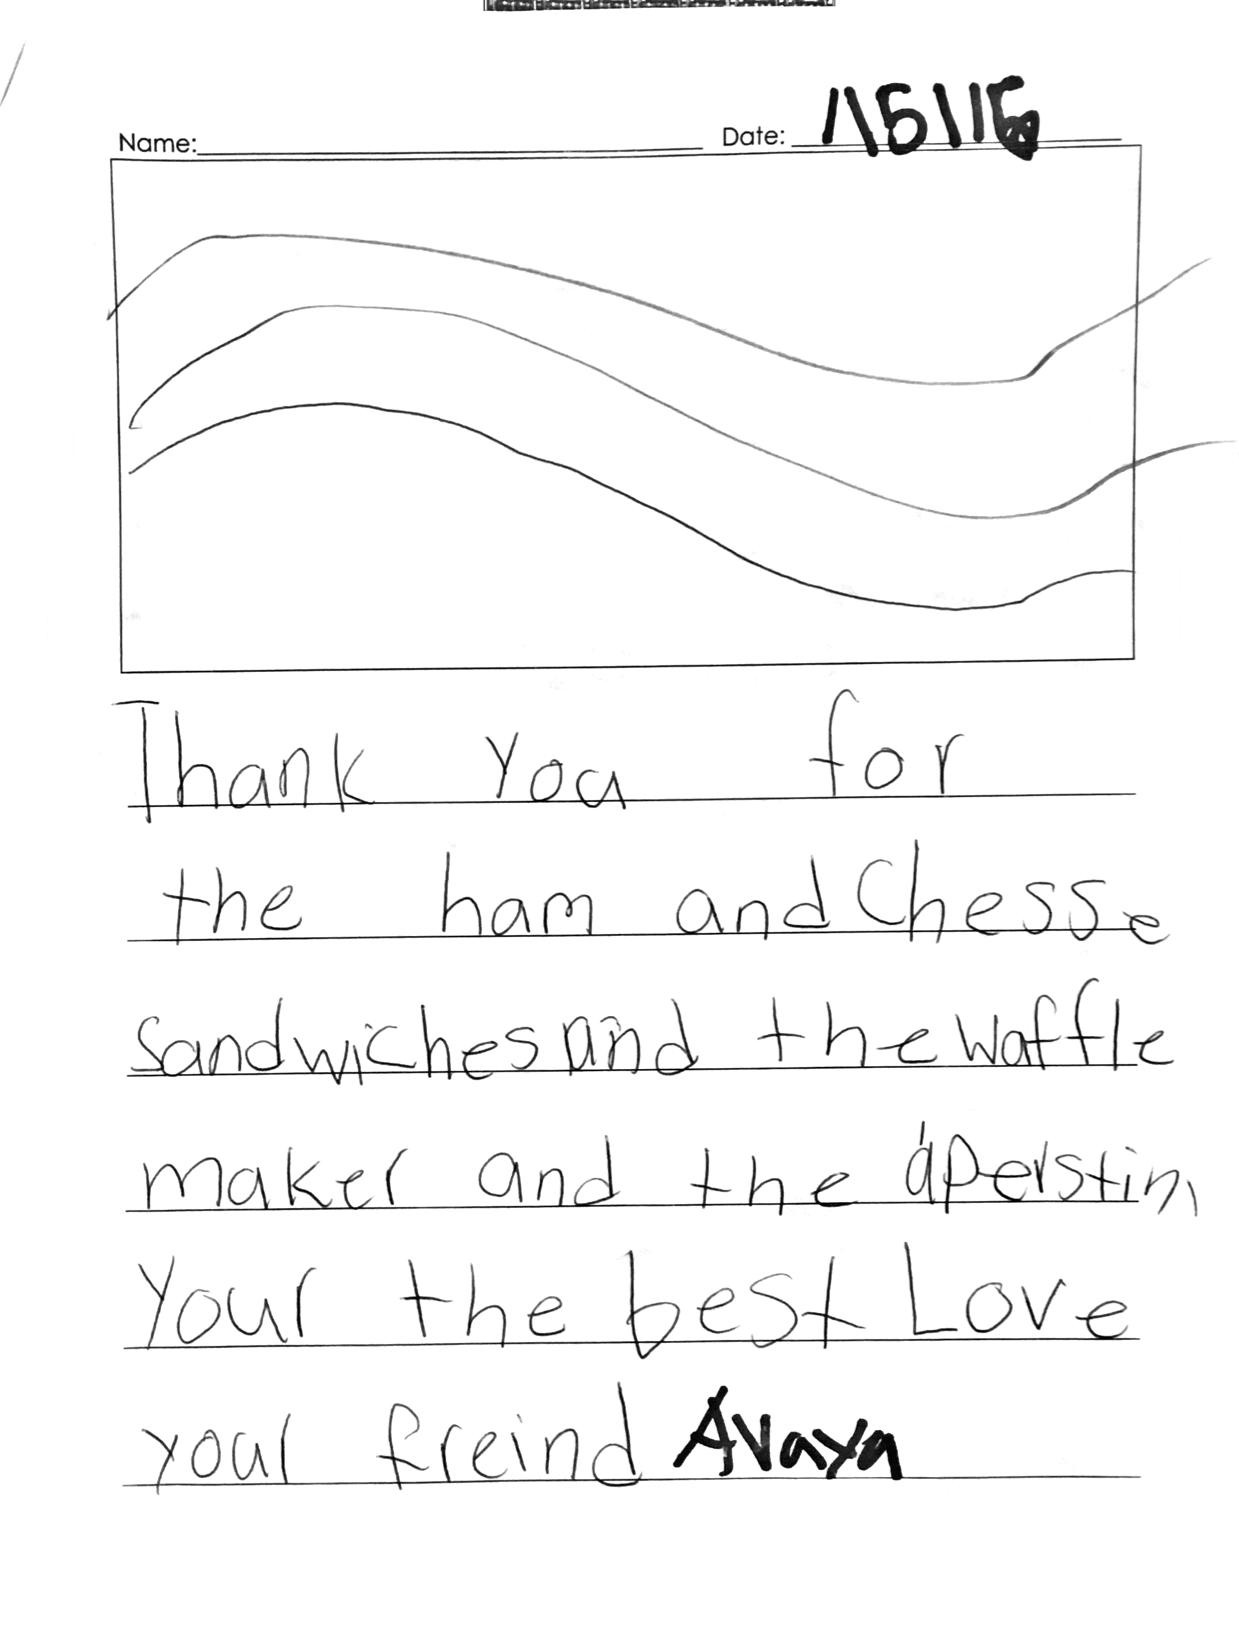 Name: Date:
Thank You for
the ham and Chesse
sandwiches and the waffle
maker and the aperstin,
Your the best Love
your freind Avaya